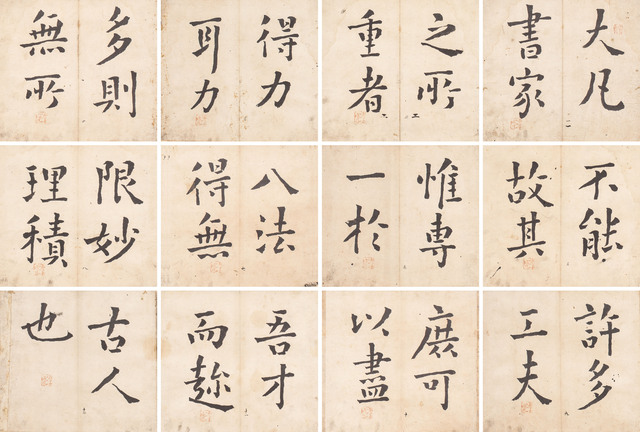 大凡
書家
之所
重者
得力
耳力
多則
無所
不能
故其
惟專
一於
八法
得無
限妙
理積
許多
工夫
庶可
以盡
吾才
而
古人
也